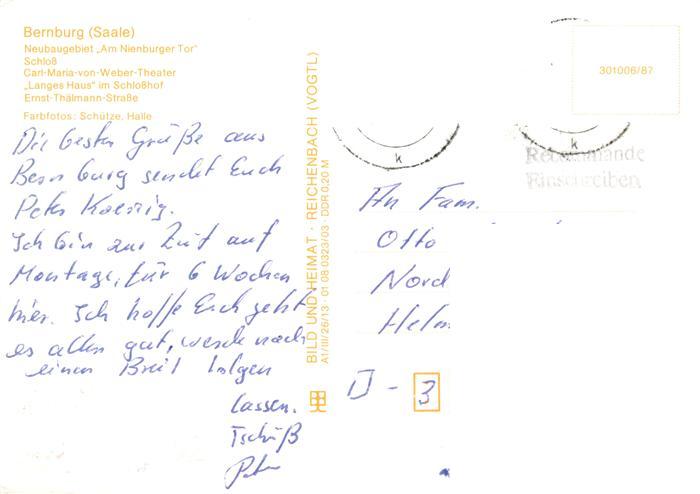 Bernburg (Saale)
Neubaugebiet „Am Nienburger Tor"
Schloß
Carl-Maria-von-Weber-Theater
„Langes Haus" im Schloßhof
Ernst-Thälmann-Straße
Farbfotos: Schütze, Halle
Die besten Grüße aus
Bernburg sendet Euch
Peter
Ich bin zur Zeit auf
Montage, für 6 Wochen
hier. Ich hoffe Euch geht
es allen gut, werde noch
einen Brief folgen
lassen.
Tschüß
Peter
BILD UND HEIMAT · REICHENBACH (VOGTL)
A1/III/26/13 · 01 08 0323/03 · DDR 0,20 M
301006/87
k
k
Recommandé
Einschreiben
An Fam.
Otto
Nord
Helm
D - 3